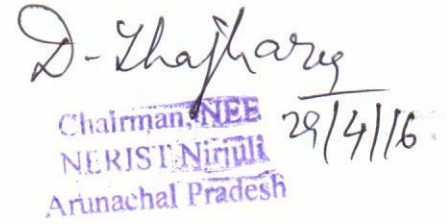 D-
29/4/16
Chairman, NEE
NERIST Nirjuli
Arunachal Pradesh